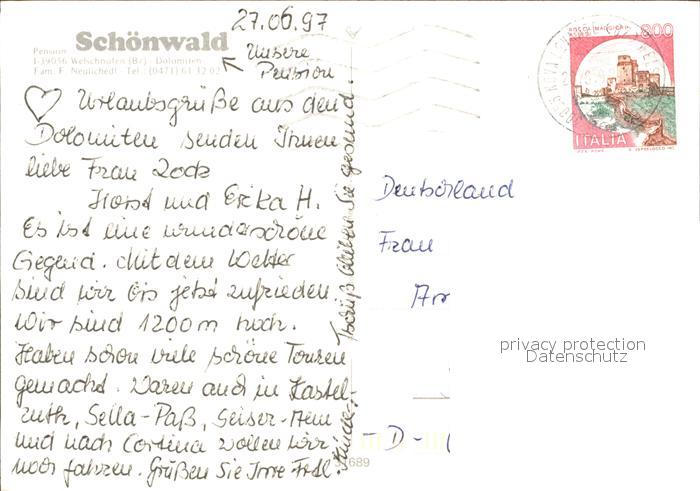 27.06.97
Pension Schönwald
I-39056 Welschnofen (Bz) - Dolomiten
Fam. F. Neulichedl Tel. (0471) 61 32 02
Unsere
Pension
Urlaubsgrüße aus den
Dolomiten senden Ihnen
liebe Frau
Horst und Erika H.
Es ist eine wunderschöne
Gegend. Mit dem Wetter
sind wir bis jetzt zufrieden.
Wir sind 1200 m hoch.
Haben schon viele schöne Touren
gemacht. Waren auch in Kastel-
ruth, Sella-Paß, Seiser-Alm
und nach Cortina wollen wir
noch fahren. Grüßen Sie Ihre Frdl.
Kinder. Tschüß bleiben Sie gesund.
ROCCA MAGGIORE
800
ITALIA
Deutschland
Frau
privacy protection
Datenschutz
D-